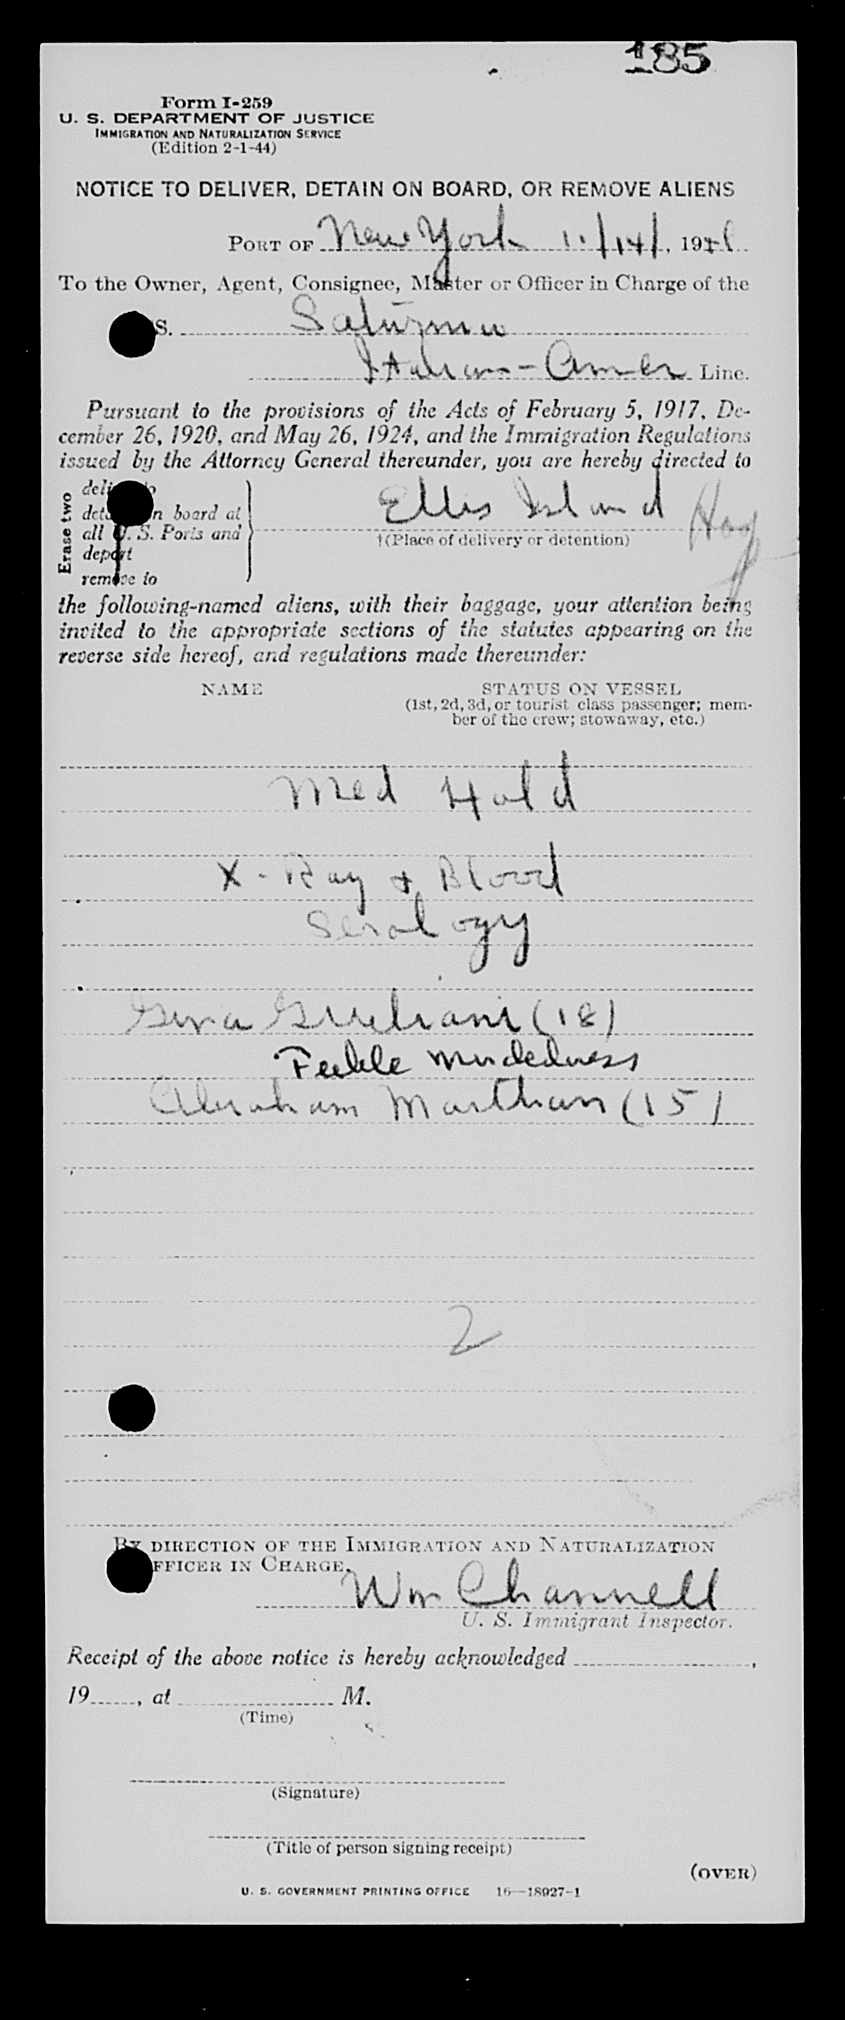 185
Form I-259
U. S. DEPARTMENT OF JUSTICE
IMMIGRATION AND NATURALIZATION SERVICE
(Edition 2-1-44)
NOTICE TO DELIVER, DETAIN ON BOARD, OR REMOVE ALIENS
PORT OF New York 11/14/, 194
To the Owner, Agent, Consignee, Master or Officer in Charge of the
S. Saturnia
Italian-Amer Line.
Pursuant to the provisions of the Acts of February 5, 1917, De-
cember 26, 1920, and May 26, 1924, and the Immigration Regulations
issued by the Attorney General thereunder, you are hereby directed to
Erase two
deliver to
detain on board at
all U. S. Ports and
deport
remove to
Ellis Island
†(Place of delivery or detention)
the following-named aliens, with their baggage, your attention being
invited to the appropriate sections of the statutes appearing on the
reverse side hereof, and regulations made thereunder:
NAME STATUS ON VESSEL
(1st, 2d, 3d, or tourist class passenger; mem-
ber of the crew; stowaway, etc.)
Med Hold
X-Ray + Blood
Serology
Gina Giuliani (18)
Feeble mindedness
Abraham Marthan (15)
2
BY DIRECTION OF THE IMMIGRATION AND NATURALIZATION
OFFICER IN CHARGE.
Wm Channell
U. S. Immigrant Inspector.
Receipt of the above notice is hereby acknowledged ,
19 , at M.
(Time)
(Signature)
(Title of person signing receipt)
(OVER)
U. S. GOVERNMENT PRINTING OFFICE 16—18927-1